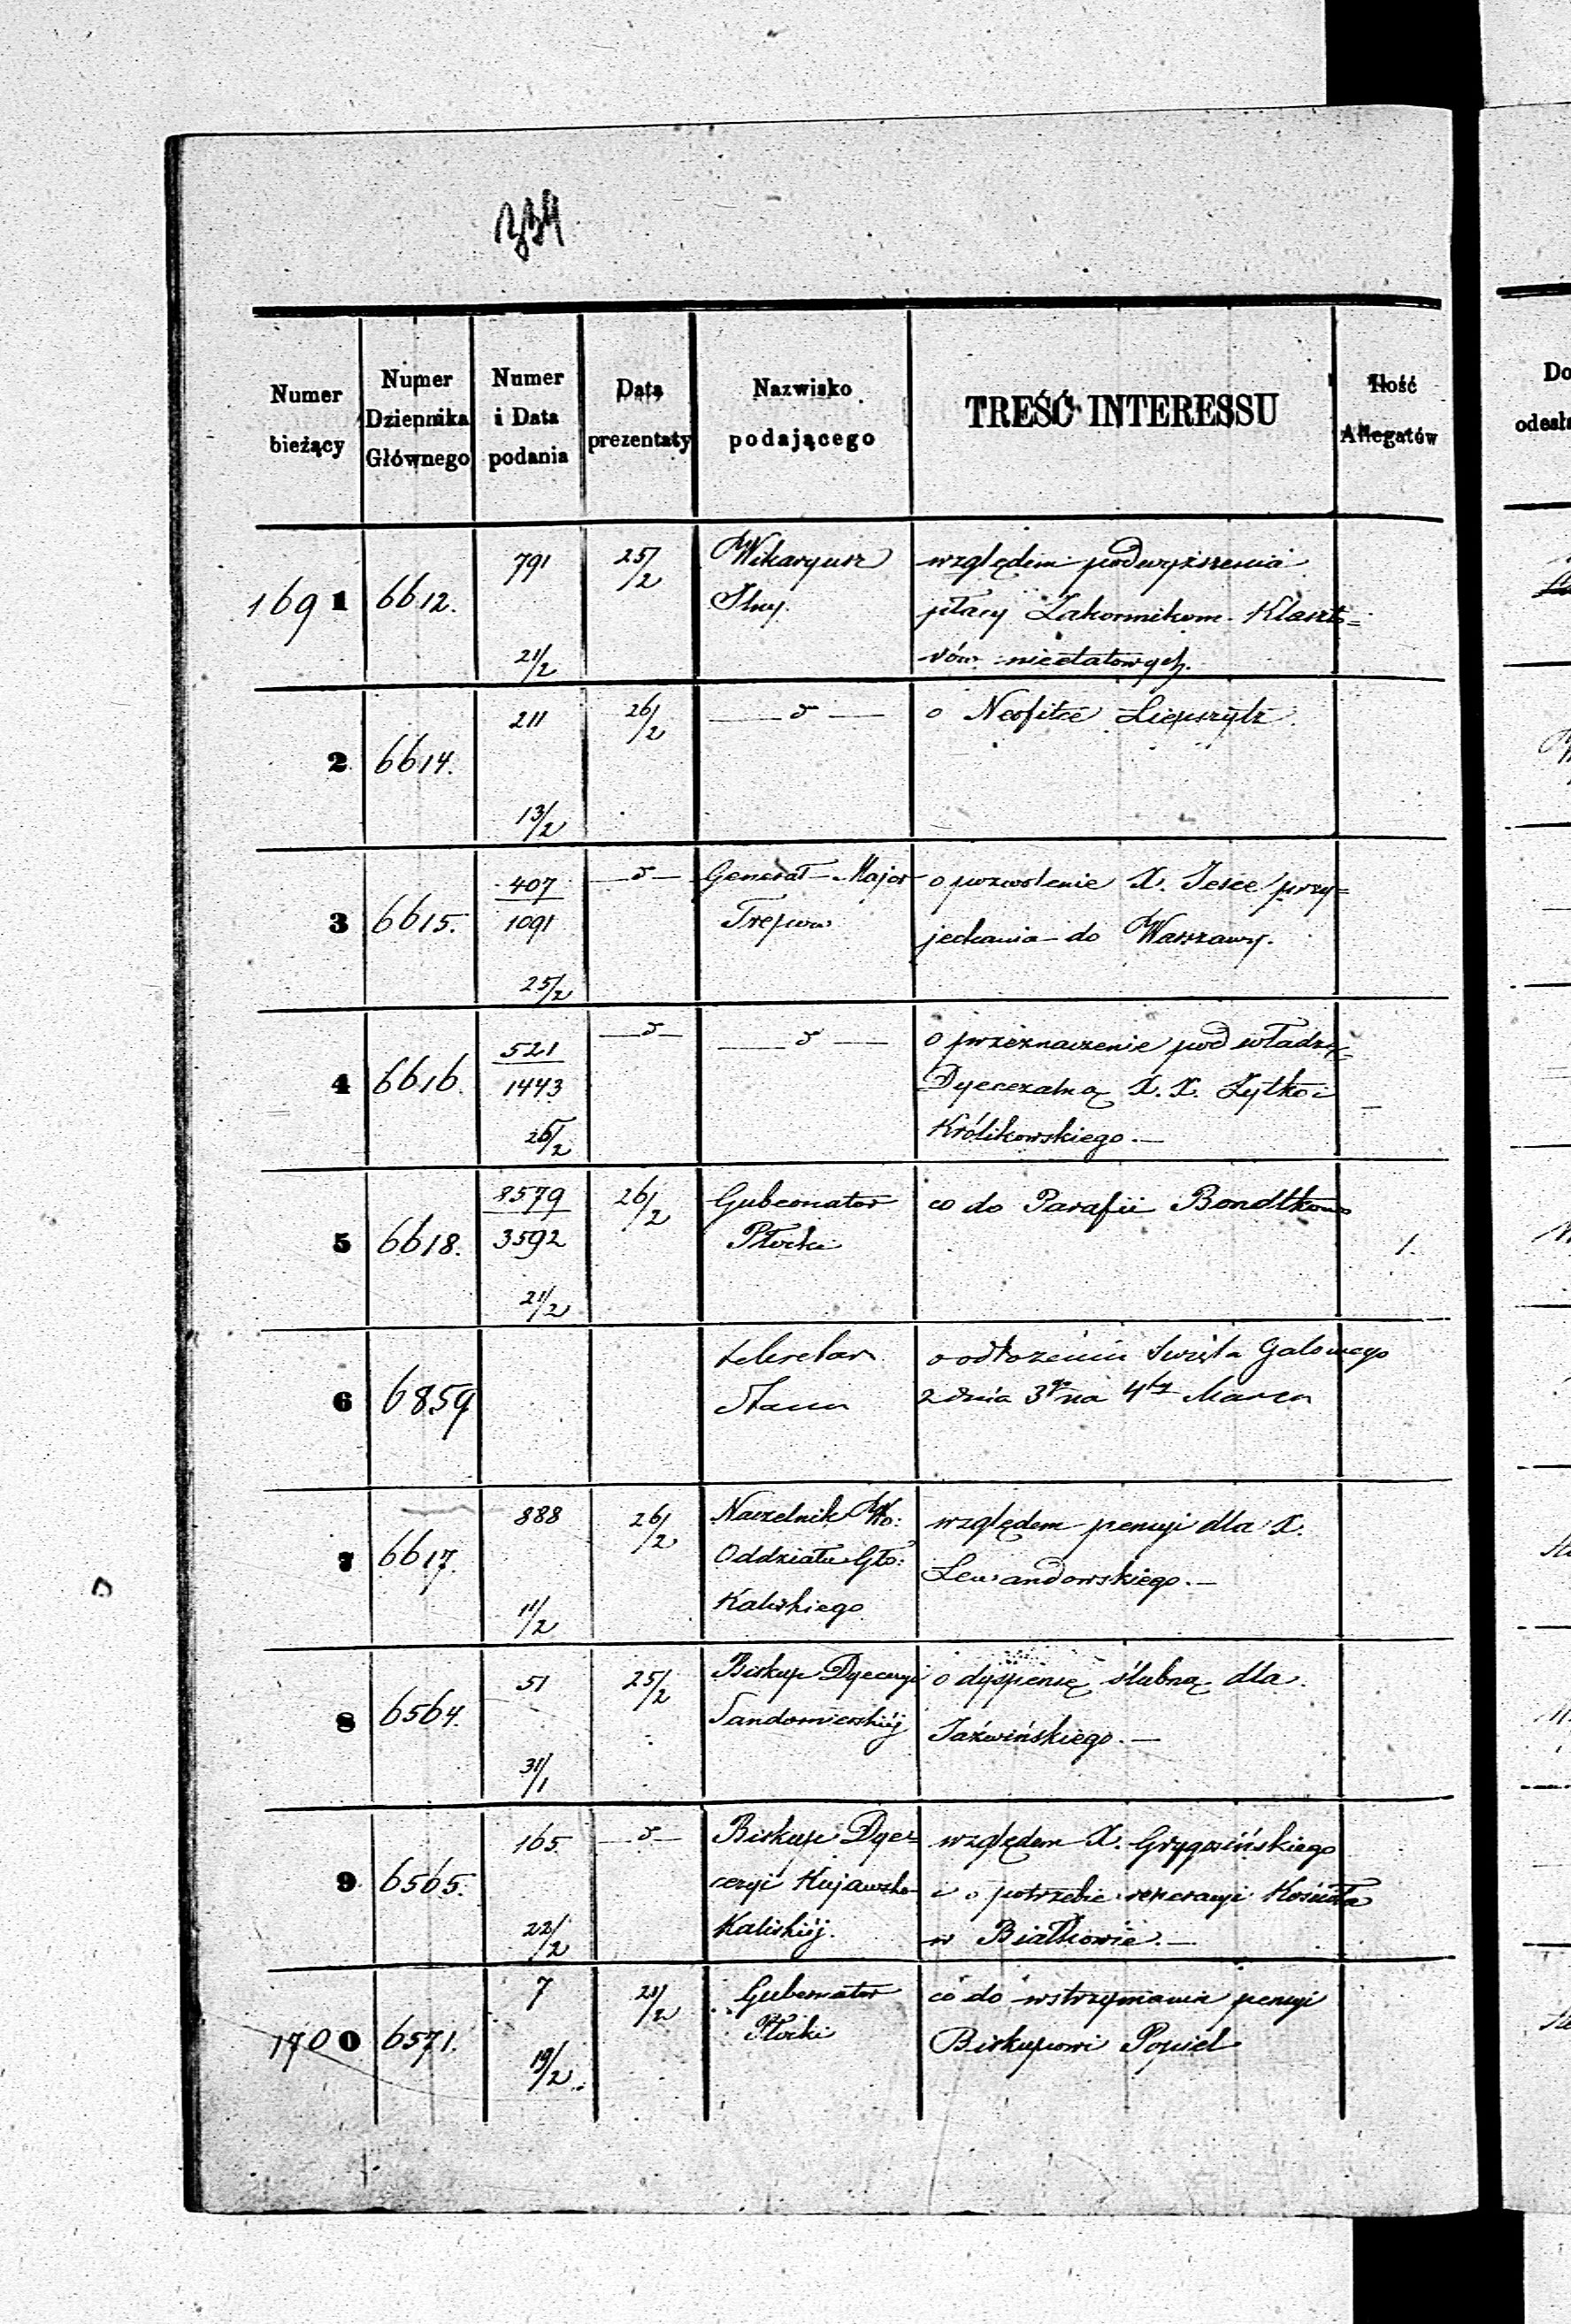 Numer bieżący
Numer Dziennika Głównego
Numer i Data podania
Data prezentaty
Nazwisko podającego
TREŚĆ INTERESSU
Ilość Allegatów
1691 6612. 791 21/2 25/2 Wikaryusz
względem podwyższenia
płacy Zakonnikom Klaszto=
rów nieetatowych.
2 6614. 211 13/2 26/2 — d —
o Neofitce
3 6615. 407/1091 25/2 — d — Generał-Major Trepow
o pozwolenie X. przy=
jechania do Warszawy.
4 6616. 521/1443 26/2 — d — — d —
o przeznaczenie pod władzę
Dyecezalną X. X. Zytko i
Królikowskiego. —
5 6618. 8579/3592 21/2 26/2 Gubernator Płocki
co do Parafii 1.
6 6859 Sekretarz Stanu
o odłożeniu Święta Galowego
z dnia 3go na 4ty Marca
7 6617. 888 11/2 26/2 Naczelnik Wo: Oddziału Głó: Kaliskiego
względem pensyi dla X.
Lewandowskiego. —
8 6564. 51 31/1 25/2 Biskup Dyecezyi Sandomierskiéj
o dyspensę ślubną dla
Jaźwińskiego. —
9 6565. 165 22/2 — d — Biskup Dye= cezyi Kujawsko- Kaliskiéj.
względem X.
i o potrzebie reperacyi Kościoła
w Białkowie. —
1700 6571. 7 19/2 21/2 Gubernator Płocki
co do wstrzymania pensyi
Biskupowi Popiel